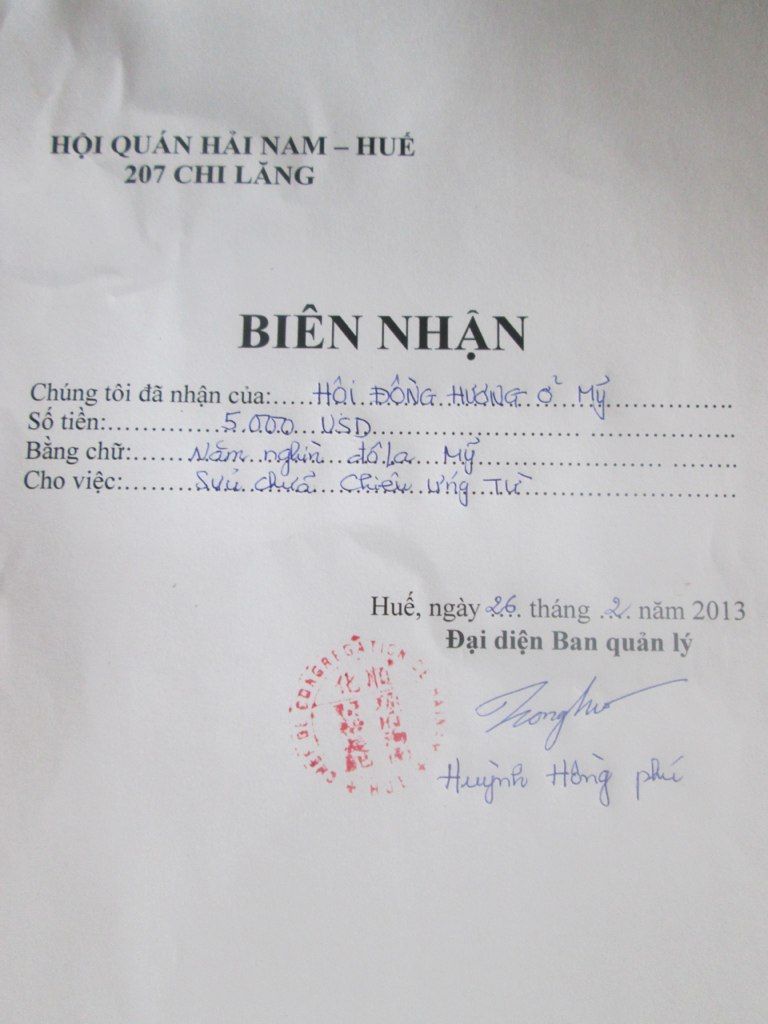 HỘI QUÁN HẢI NAM – HUẾ
207 CHI LĂNG
BIÊN NHẬN
Chúng tôi đã nhận của:.....HỘI ĐỒNG HƯƠNG Ở MỸ.................
Số tiền:...............5.000 USD........................................................
Bằng chữ:.......Năm nghìn đôla Mỹ...................................
Cho việc:.........Sửa chữa Chiêu Ứng Từ..............................
Huế, ngày 26 tháng 2 năm 2013
Đại diện Ban quản lý
CHEF DE CONGREGATION DE HAINAN
HUE
Huỳnh Hồng phú